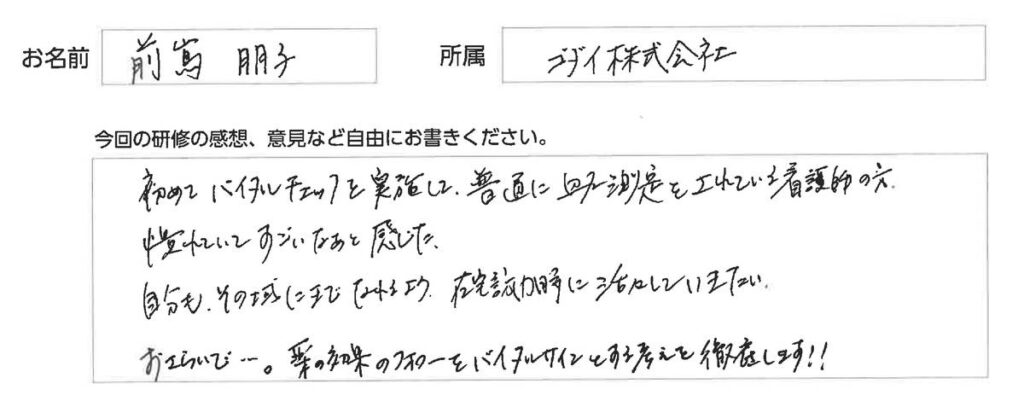 お名前 前嶌 朋子
所属 ゴダイ株式会社
今回の研修の感想、意見など自由にお書きください。
初めてバイタルチェックを実施して、普通に血圧測定をされている看護師の方、
慣れていてすごいなあと感じた。
自分も、その域にまでなれるよう、在宅訪問時に活かしていきたい。
おさらいで…。薬の効果のフォローをバイタルサインとする考えを徹底します!!